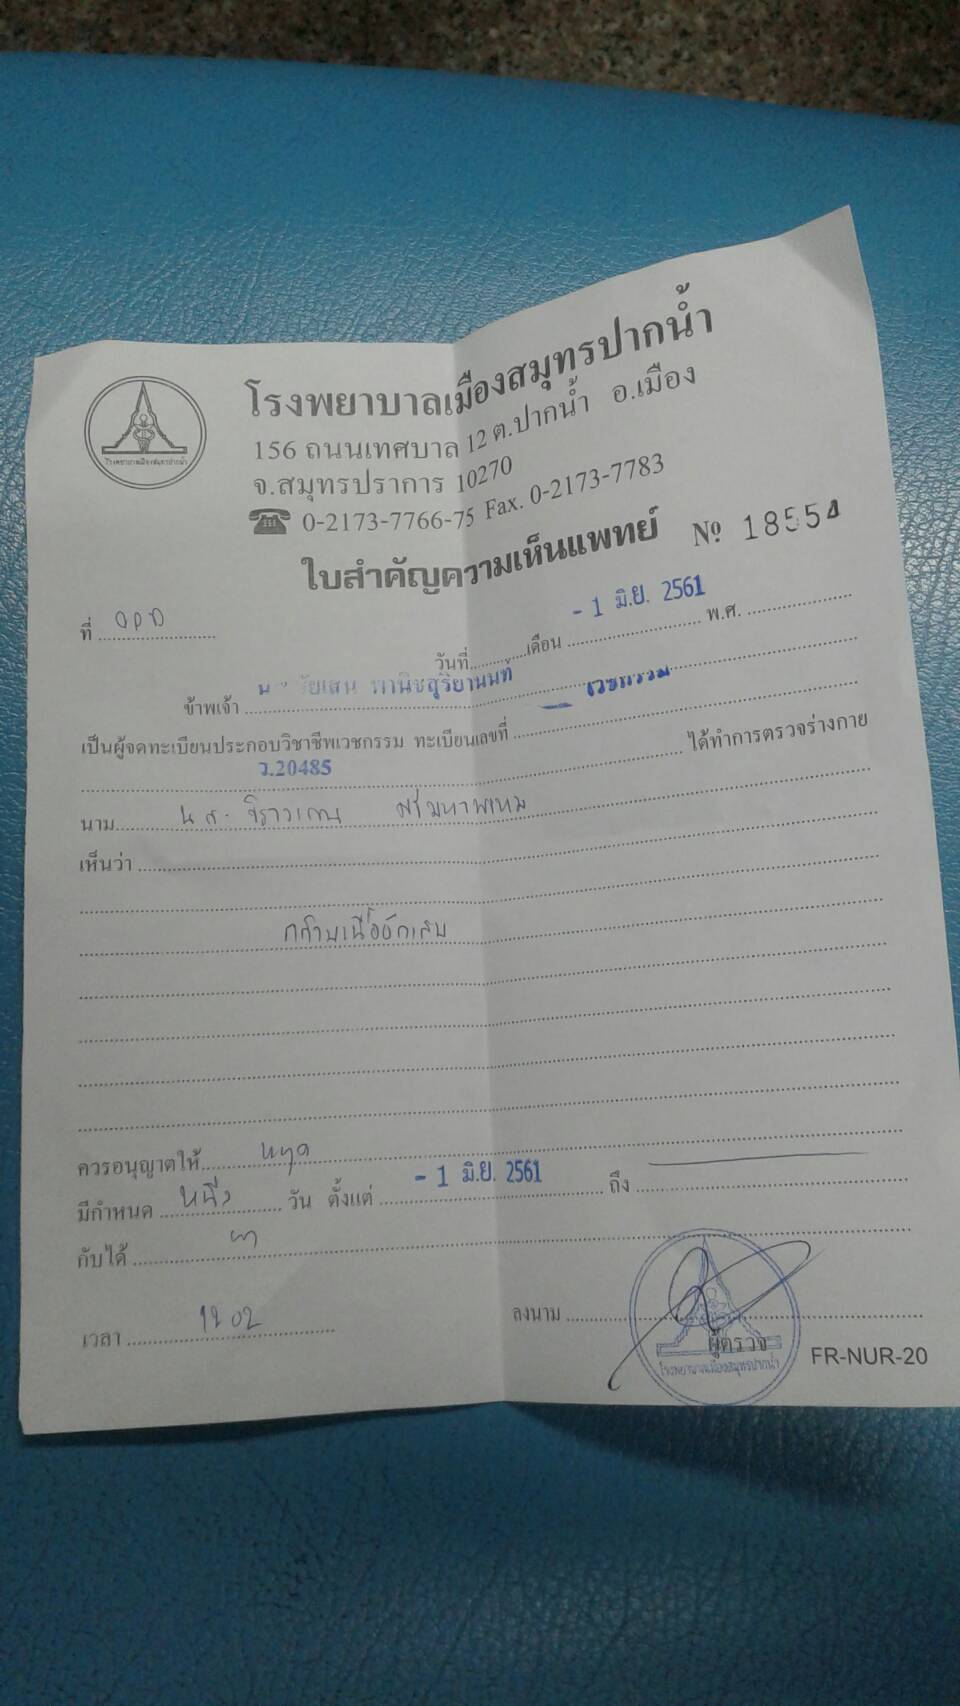 โรงพยาบาลเมืองสมุทรปากน้ำ
156 ถนนเทศบาล 12 ต.ปากน้ำ อ.เมือง
จ.สมุทรปราการ 10270
0-2173-7766-75 Fax. 0-2173-7783
ใบสำคัญความเห็นแพทย์ № 18554
ที่ OPD
- 1 มิ.ย. 2561
วันที่ เดือน พ.ศ.
ข้าพเจ้า พานิชสุริยานนท์ เวชกรรม
เป็นผู้จดทะเบียนประกอบวิชาชีพเวชกรรม ทะเบียนเลขที่
ว.20485 ได้ทำการตรวจร่างกาย
นาม น.ส.
เห็นว่า
กล้ามเนื้ออักเสบ
ควรอนุญาตให้ หยุด
มีกำหนด หนึ่ง วัน ตั้งแต่ - 1 มิ.ย. 2561 ถึง
กับได้
เวลา ลงนาม
ผู้ตรวจ
โรงพยาบาลเมืองสมุทรปากน้ำ
FR-NUR-20